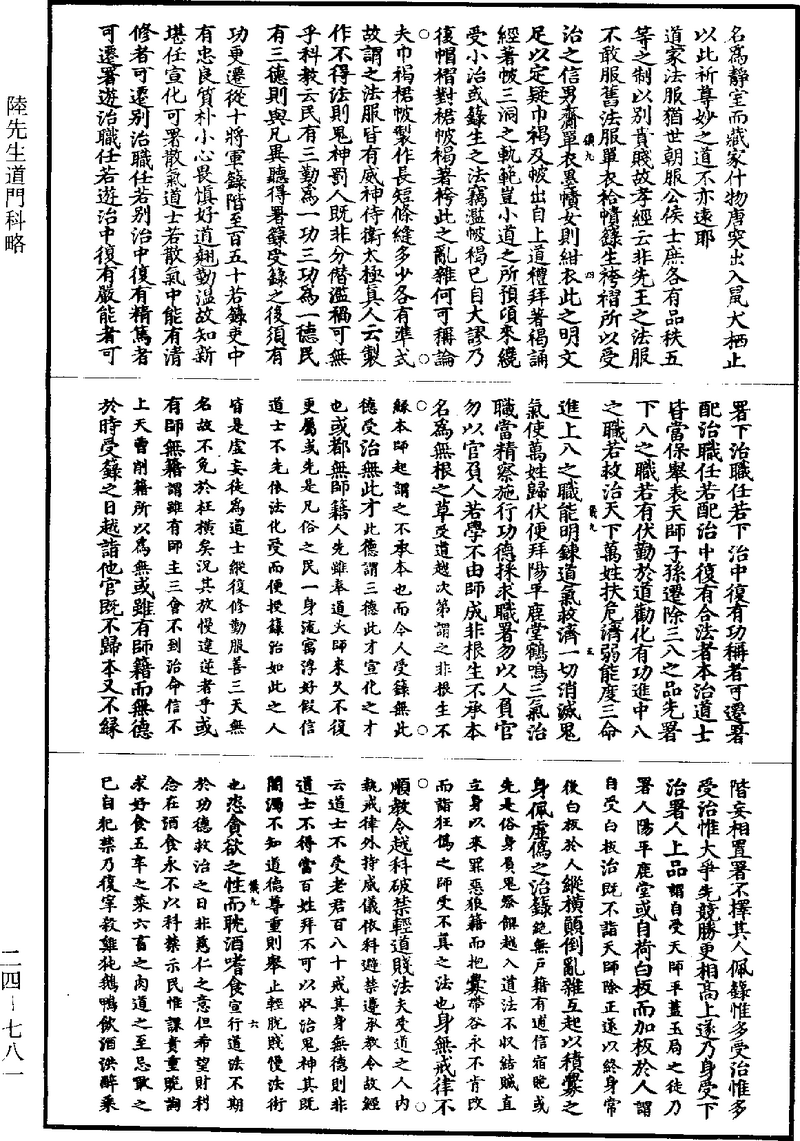 名爲靜室而藏家什物唐突出入鼠犬栖止
以此祈尊妙之道不亦遠耶
道家法服猶世朝服公侯士庶各有品秩五
等之制以別貴賤故孝經云非先王之法服
不敢服舊法服單衣袷幘籙生袴褶所以受
儀九
四
治之信男齋單衣墨幘女則紺衣此之明文
足以定疑巾褐及帔出自上道禮拜著褐誦
經著帔三洞之軌範豈小道之所預頃來纔
受小治或籙生之法竊濫帔褐已自大謬乃
復帽褶對裙帔褐著袴此之亂雜何可稱論
夫巾褐裙帔製作長短條縫多少各有準式
故謂之法服皆有威神侍衛太極真人云製
作不得法則鬼神罰人既非分僭濫禍可無
乎科教云民有三勤爲一功三功爲一德民
有三德則與凡異聽得署籙受籙之後須有
功更遷從十將軍籙階至百五十若籙吏中
有忠良質朴小心畏慎好道翹勤溫故知新
堪任宣化可署散氣道士若散氣中能有清
修者可遷別治職任若別治中復有精篤者
可遷署遊治職任若遊治中復有嚴能者可
署下治職任若下治中復有功稱者可遷署
配治職任若配治中復有合法者本治道士
皆當保舉表天師子孫遷除三八之品先署
下八之職若有伏勤於道勸化有功進中八
之職若救治天下萬姓扶危濟弱能度三命
儀九
五
進上八之職能明鍊道氣救濟一切消滅鬼
氣使萬姓歸伏便拜陽平鹿堂鶴鳴三氣治
職當精察施行功德採求職署勿以人負官
勿以官負人若學不由師成非根生不承本
名爲無根之草受道越次第謂之非根生不
穌本師起謂之不承本也而今人受籙無此
德受治無此才此德謂三德此才宣化之才
也或都無師籍人先雖奉道火師來久不復
更屬或先是凡俗之民一身流寓浮好假信
道士不先依法化受而便授籙治如此之人
皆是虛妄徒爲道士縱復修勤服善三天無
名故不免於枉橫矣況其放慢違逆者乎或
有師無籍謂雖有師主三會不到治命信不
上天曹削籍所以爲無或雖有師籍而無德
於時受籙之日越詣他官既不歸本又不緣
階妄相置署不擇其人佩籙惟多受治惟多
受治惟大爭先競勝更相高上遂乃身受下
治署人上品謂自受天師平蓋玉局之徒乃
署人陽平鹿堂或自荷白板而加板於人謂
自受白板治既不詣天師除正遂以終身常
後白板於人縱橫顛倒亂雜互起以積釁之
身佩虛僞之治籙絕無戶籍有逋信宿晚或
先是俗身負鬼祭餟越入道法不收結贓直
立身以來罪惡狼籍而抱釁帶咎永不肯改
而詣狂僞之師受不真之法也身無戒律不
順教令越科破禁輕道賤法夫受道之人内
執戒律外持威儀依科避禁遵承教令故經
云道士不受老君百八十戒其身無德則非
道士不得當百姓拜不可以收治鬼神其既
闇濁不知道德尊重則舉止輕脫賤慢法術
儀九
六
也恣貪欲之性而耽酒嗜食宣行道法不期
於功德救治之日非慈仁之意但希望財利
念在酒食永不以科禁示民惟課責重贶詢
求好食五辛之菜六畜之肉道之至忌噉之
已自犯禁乃復宰殺雞豘鵝鴨飲酒洪醉乘
陸先生道門科略
二四—七八一